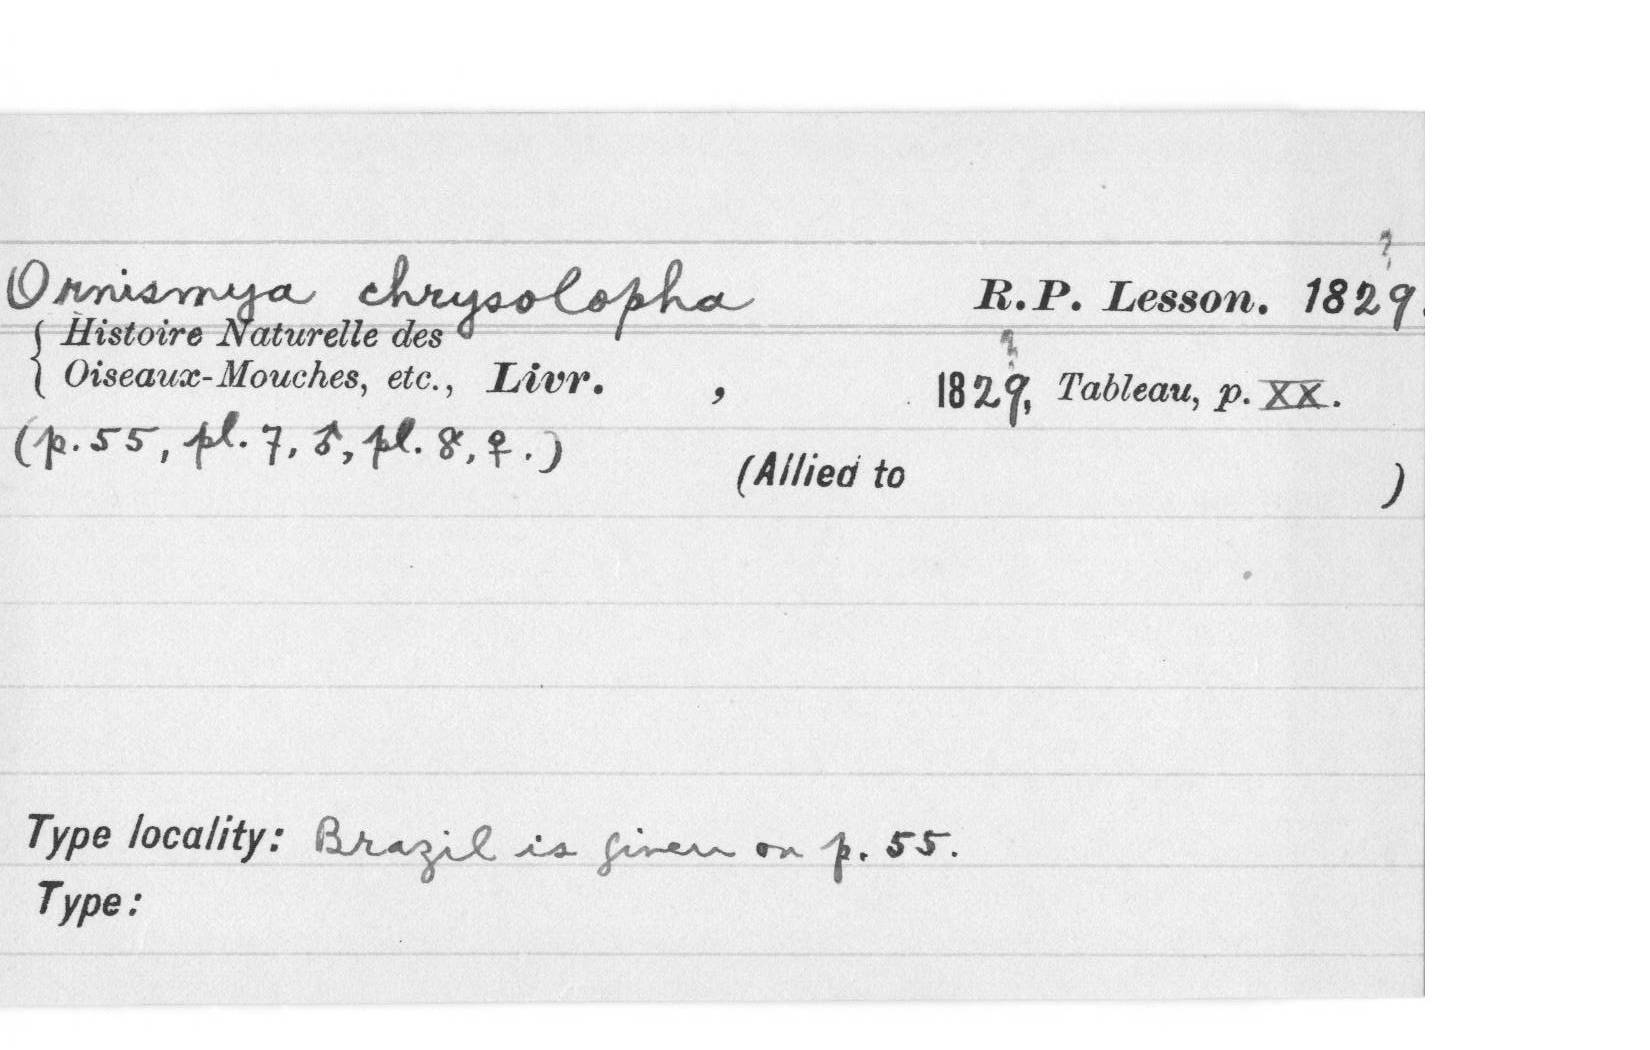 ?
Ornismya chrysolopha R.P. Lesson. 1829.
{ Histoire Naturelle des
Oiseaux-Mouches, etc., Livr. , 1829?, Tableau, p. XX.
(p. 55, pl. 7, ♂, pl. 8, ♀.)
(Allied to )
Type locality: Brazil is given on p. 55.
Type: